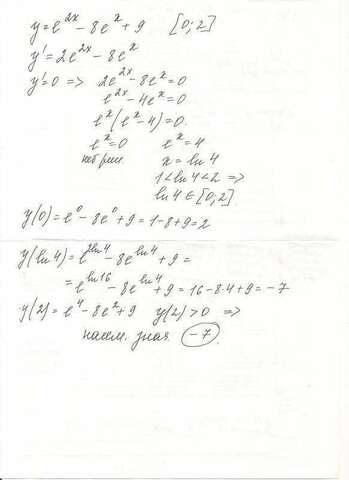 y = e^{2x} - 8e^x + 9 [0;2]
y' = 2e^{2x} - 8e^x
y' = 0 => 2e^{2x} - 8e^x = 0
e^{2x} - 4e^x = 0
e^x(e^x - 4) = 0.
e^x = 0 e^x = 4
нет реш. x = ln 4
1 < ln 4 < 2 =>
ln 4 ∈ [0;2]
y(0) = e^0 - 8e^0 + 9 = 1 - 8 + 9 = 2
y(ln 4) = e^{2ln 4} - 8e^{ln 4} + 9 =
= e^{ln 16} - 8e^{ln 4} + 9 = 16 - 8·4 + 9 = -7
y(2) = e^4 - 8e^2 + 9 y(2) > 0 =>
наим. знач. -7